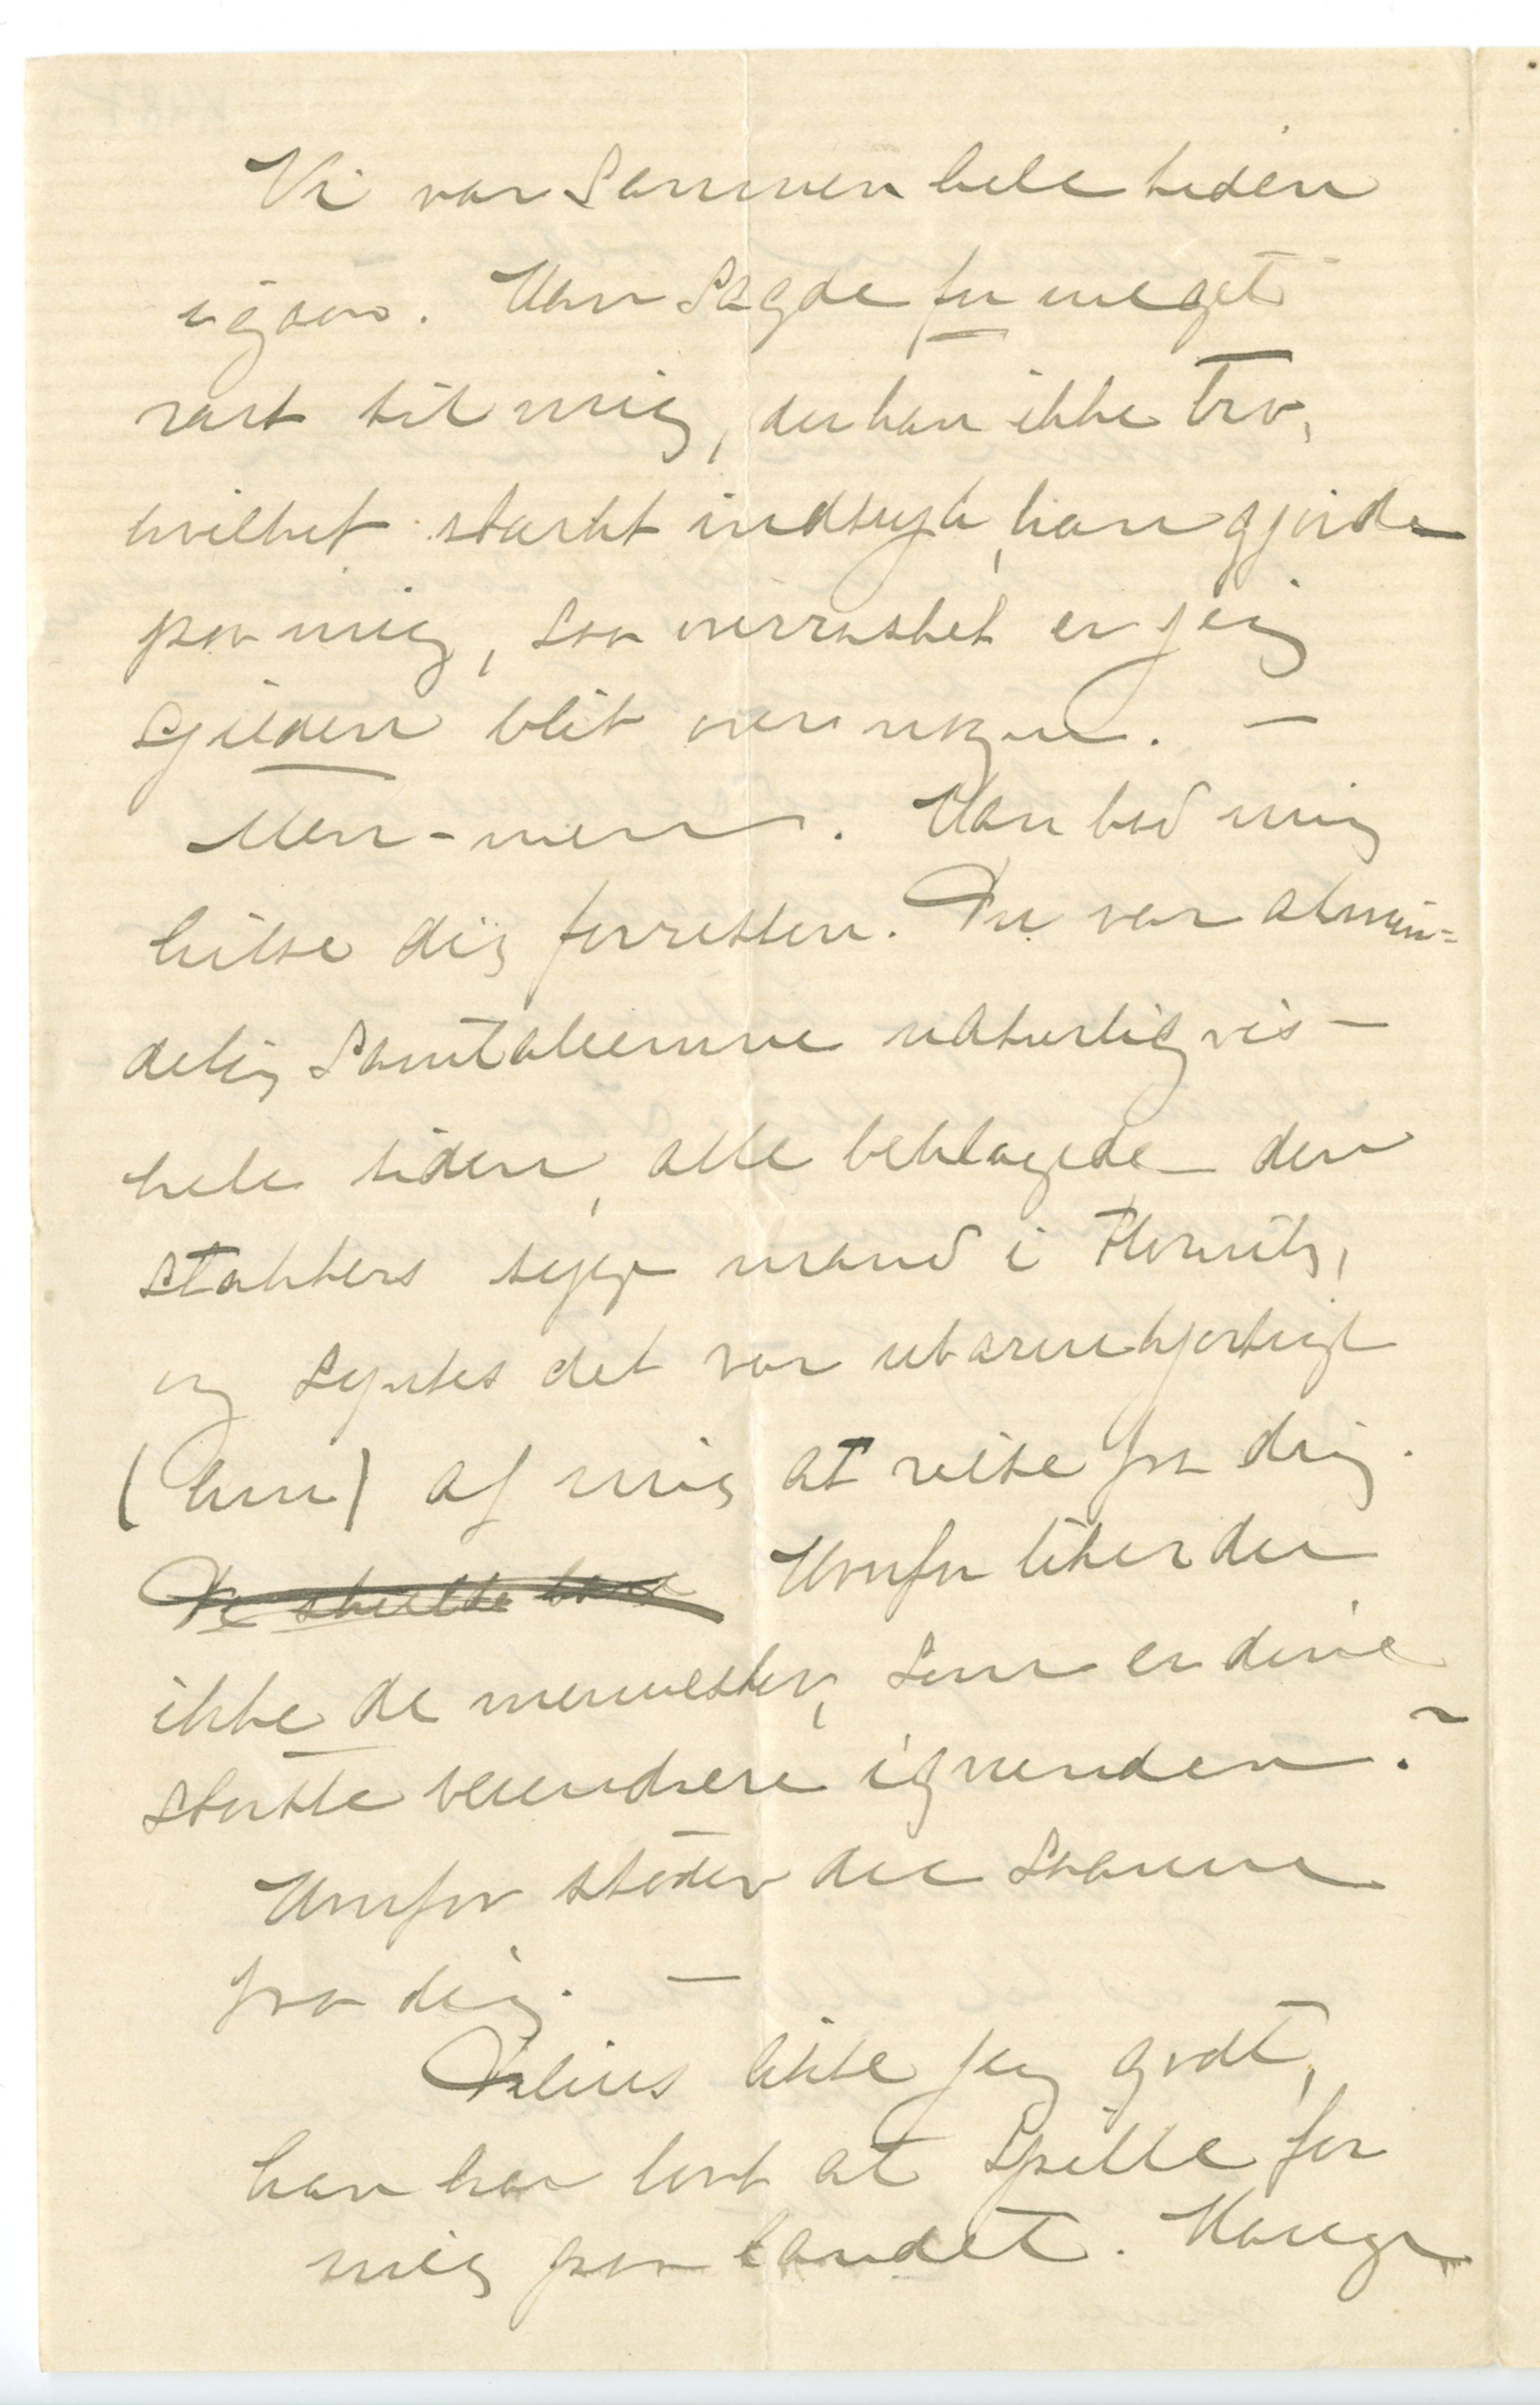 Vi var sammen hele tiden
igaar. Han sagde for meget
rart til mig, du kan ikke tro,
hvilket stærkt indtryk, han gjorde
paa mig, saa overrasket er jeg
sjelden blit over nogen. —
Men-men. Han bad mig
hilse dig forresten. Du var almin-
delig samtaleemne naturligvis —
hele tiden, alle beklagede den
stakkers syge mand i Kornitz,
og syntes det var ubarmhjertigt
(hun) af mig at reise fra dig.
De skulde bare Hvorfor liker du
ikke de mennesker, som er dine
største beundrere igrunden?
Hvorfor støder du saanne
fra dig. —
Delius likte jeg godt,
han har lovt at spille for
mig paa landet. Mange